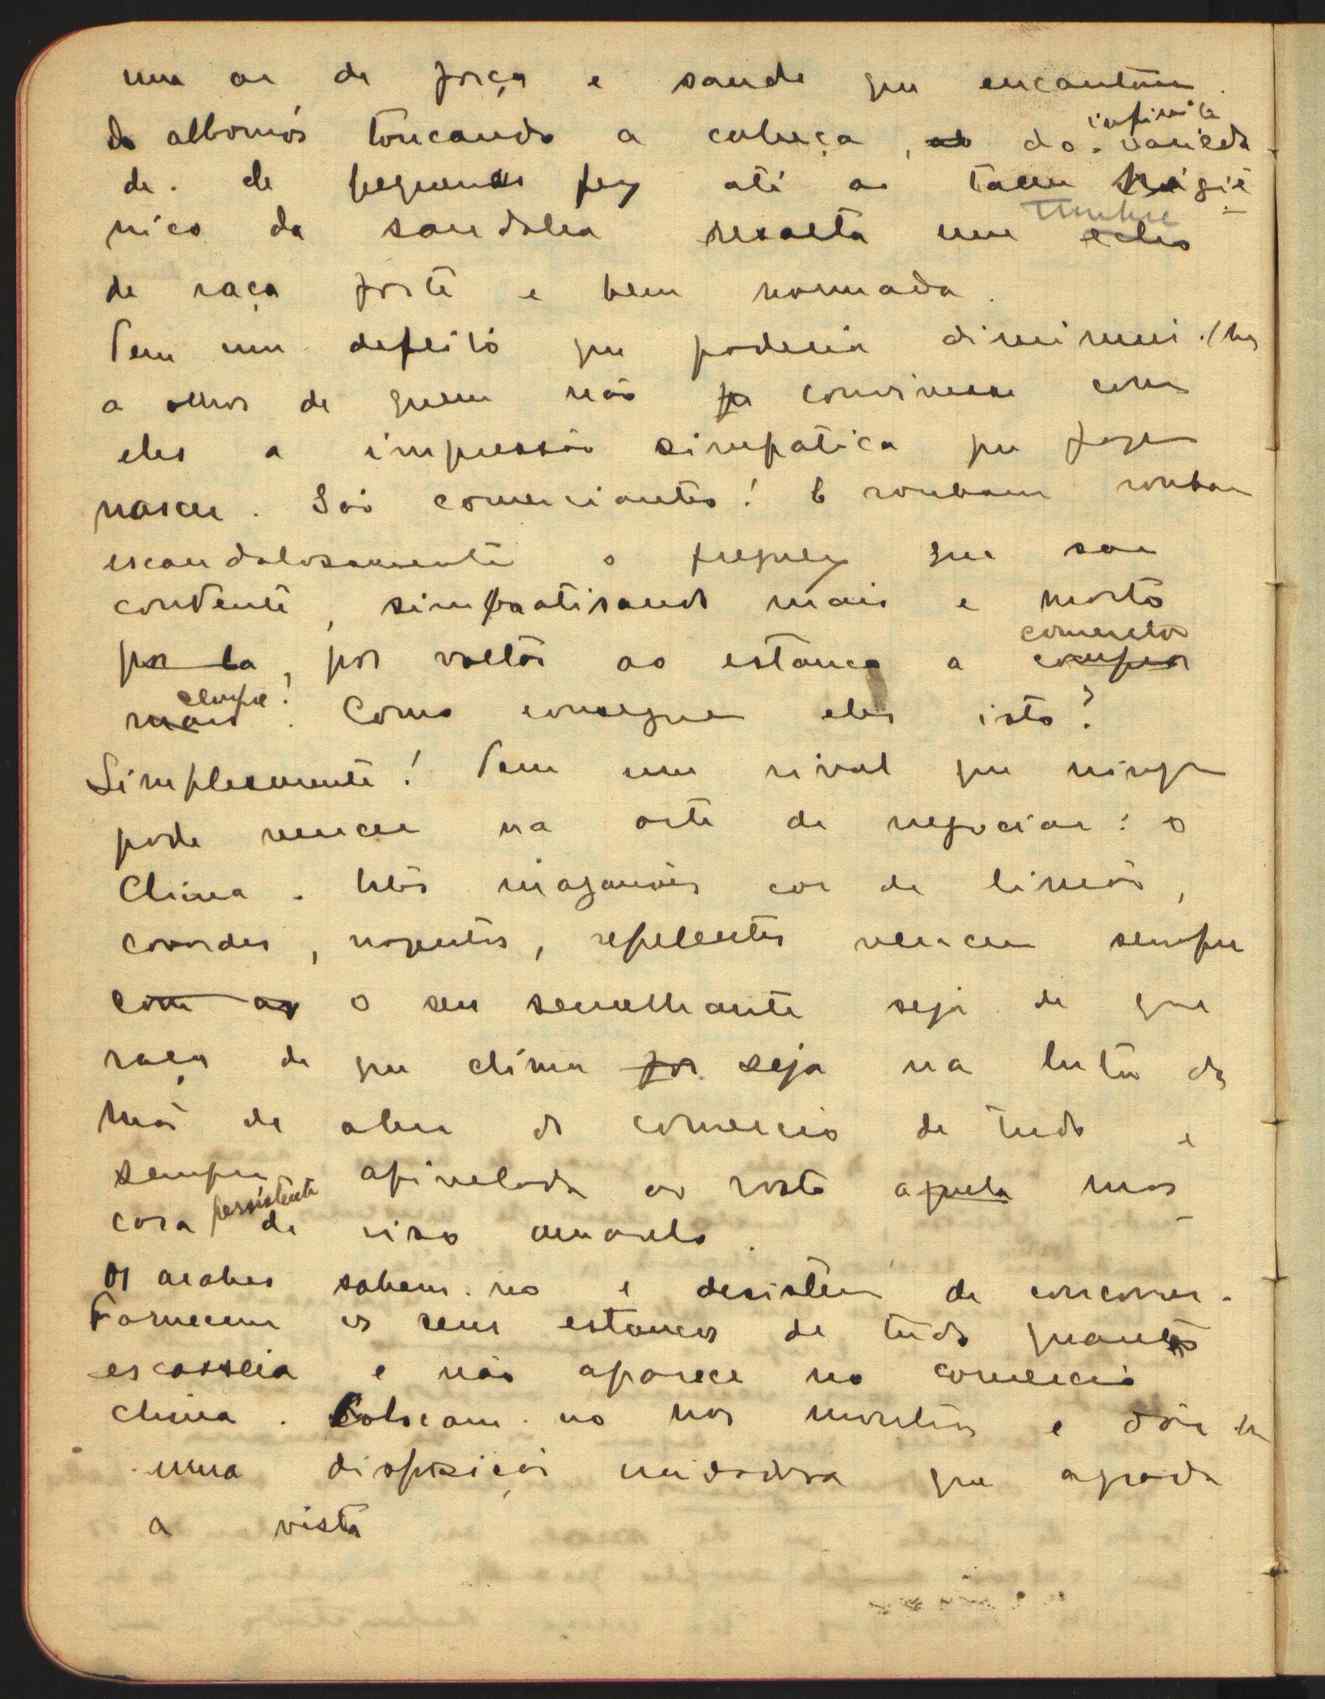 um ar de força e saude que encantam.
do albornós toucando a cabeça, da infinita varieda
de de pequenos fez até ao tacão higié
nico da sandalia resalta um timbre
de raça forte e bem normada.
Tem um defeito que poderia diminuir-lhes
a olhos de quem não convivesse com
eles a impressão simpatica que fazem
nascer. São comerciantes! E roubam roubam
escandalosamente o freguez que sae
contente, simpatisando mais e morto
por lá, por voltar ao estanco a cometer
a compra! Como conseguem eles isto?
Simplesmente! Tem um rival que ninguem
pode vencer na arte de negociar: o
China. Estes mazanões cor de limão,
covardes, nogentos, repelentes vencem sempre
com os o seu semelhante seja de que
raça de que clima for seja na luta da
mó de abur do comercio de tudo e
sempre afivelada ao rosto aquela mas
cara persistente de riso amarelo.
Os arabes sabem-no e desistem de concorrer.
Fornecem os seus estancos de tudo quanto
escasseia e não aparece no comercio
china. Colocam-no nos montras e dão-lhe
uma disposição cuidadosa que agrada
a vista